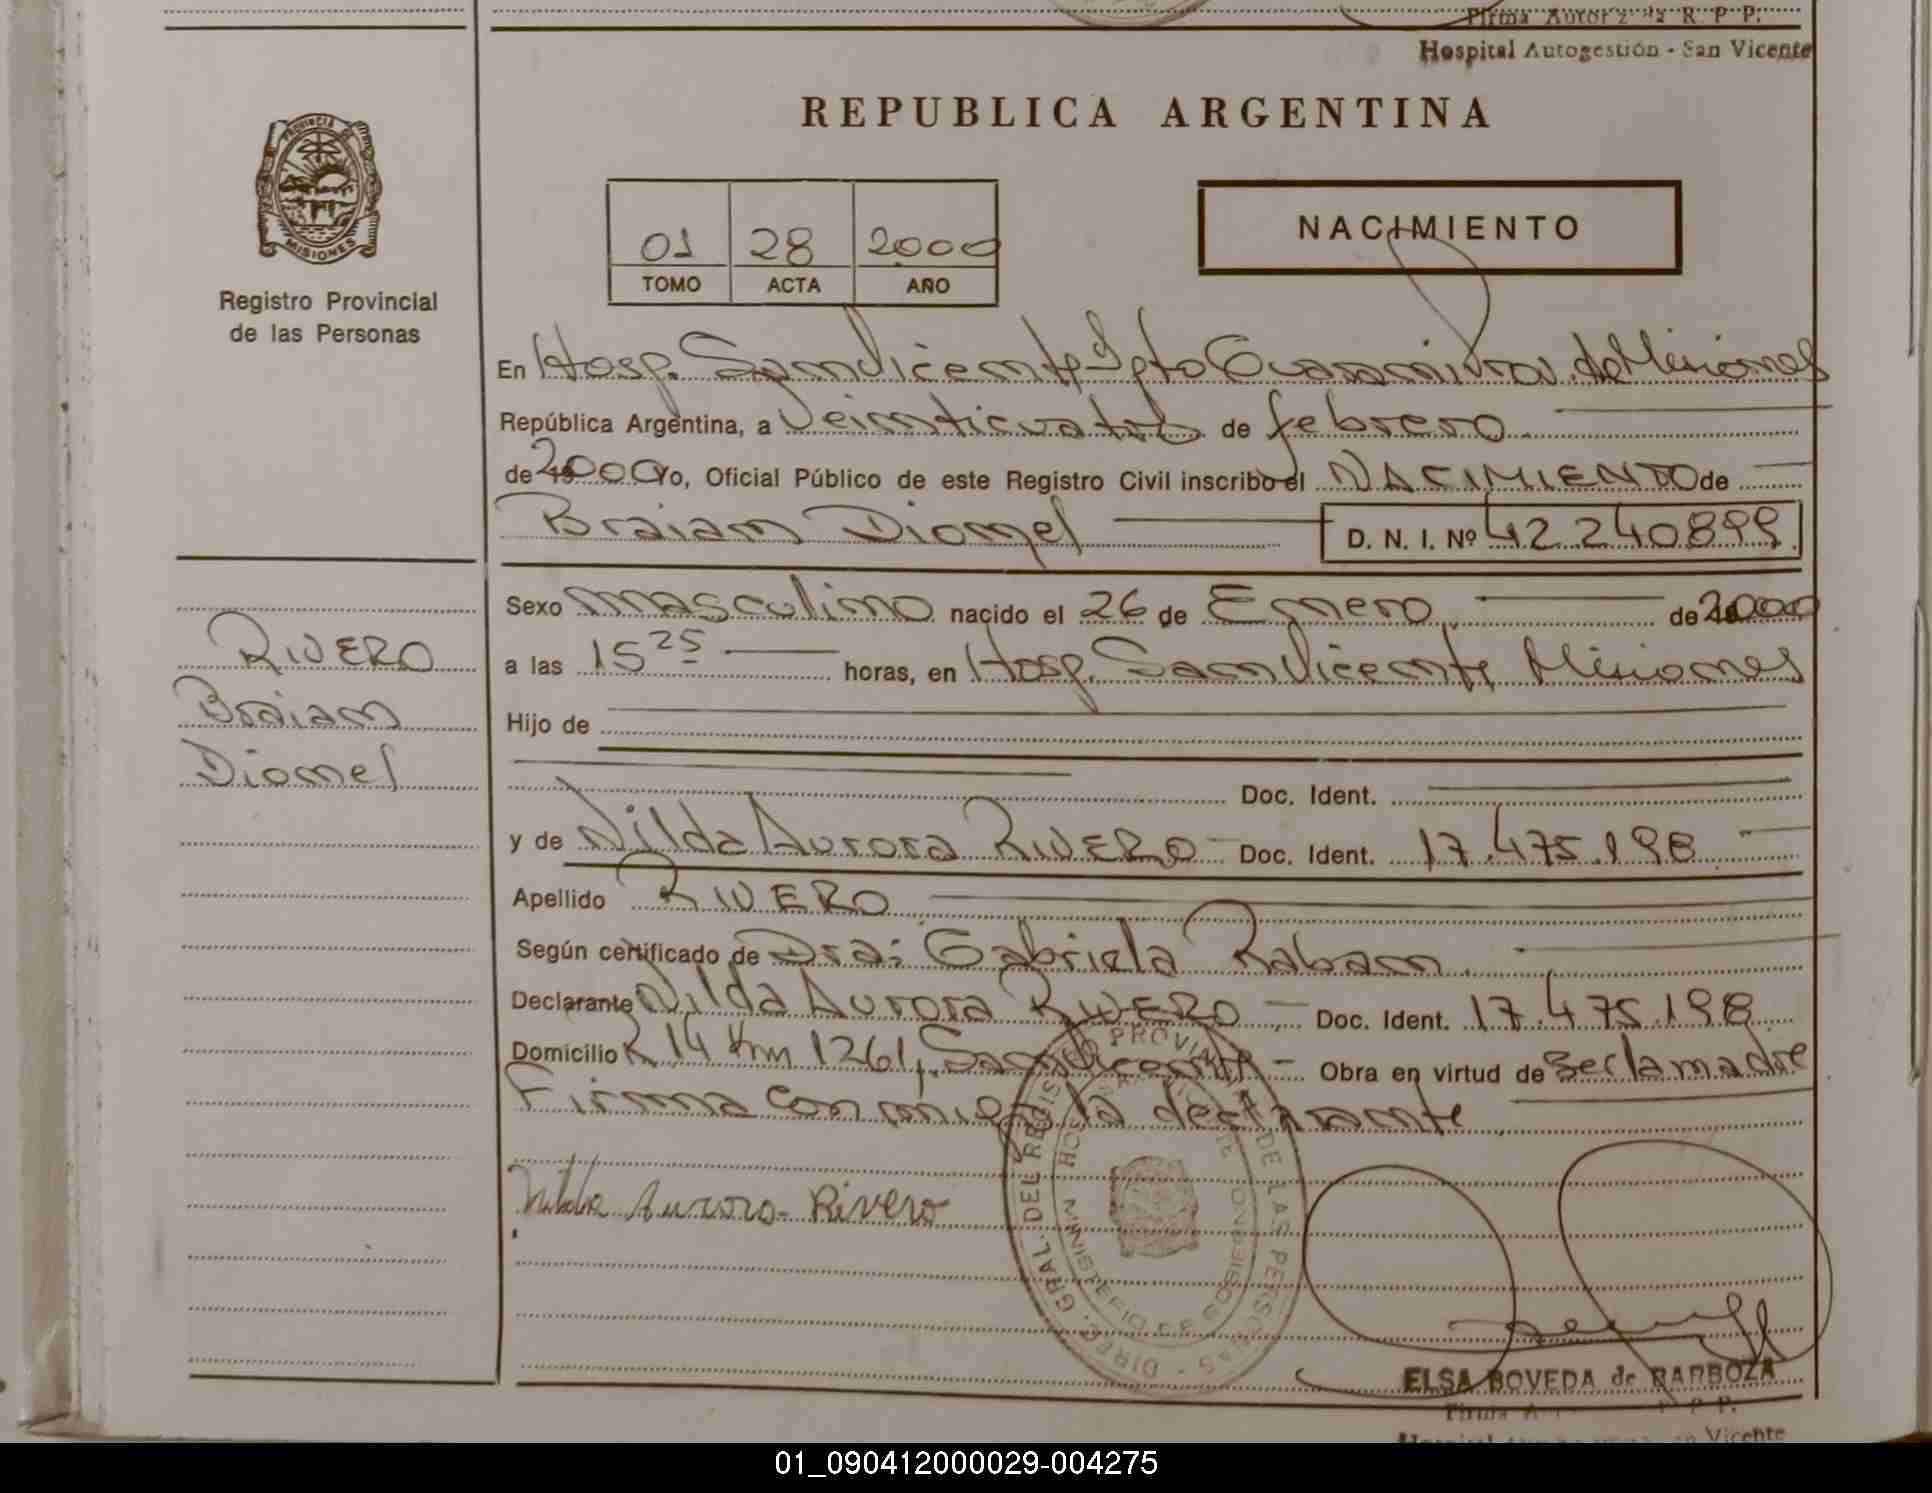 Firma Autoriz da R. P. P.
Hospital Autogestión - San Vicente
REPUBLICA ARGENTINA
PROVINCIA DE
MISIONES
Registro Provincial
de las Personas
01 28 2000
TOMO ACTA AÑO
NACIMIENTO
En Hosp. San Vicente Dpto Guarani Prov. de Misiones
República Argentina, a Veinticuatro de febrero
de 2000 Yo, Oficial Público de este Registro Civil inscribo el NACIMIENTO de
Braian Dionel D. N. I. Nº 42.240899
Sexo masculino nacido el 26 de Enero de 2000
a las 15 25 horas, en Hosp. San Vicente, Misiones
Hijo de
Doc. Ident.
y de Nilda Aurora RIVERO Doc. Ident. 17.475.198
Apellido RIVERO
Según certificado de Dra: Gabriela Raban
Declarante Nilda Aurora RIVERO Doc. Ident. 17.475.198
Domicilio R. 14 Km 1261, San Vicente - Obra en virtud de ser la madre
Firma conmigo la declarante
RIVERO
Braian
Dionel
Nilda Aurora Rivero
DIREC. GRAL. DEL REGISTRO PROVINCIAL DE LAS PERSONAS
MINISTERIO DE GOBIERNO
ELSA BOVEDA de BARBOZA
Firma A P. P.
Vicente
01_090412000029-004275